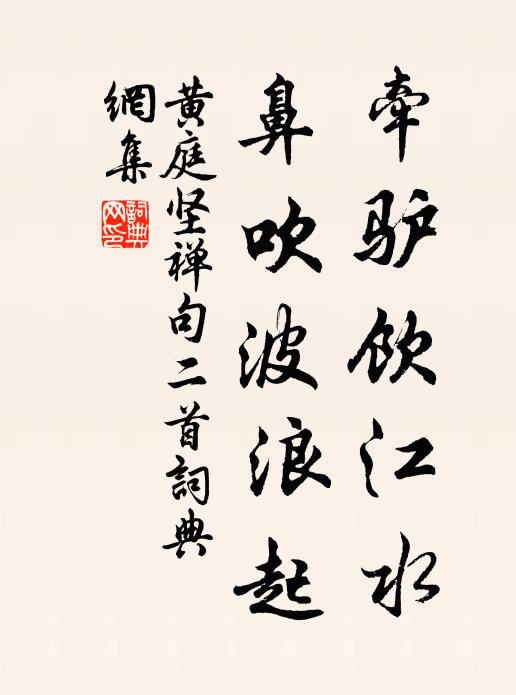 牵驴饮江水
鼻吹波浪起
黄庭坚禅句二首詞典
網集
詞典
网印